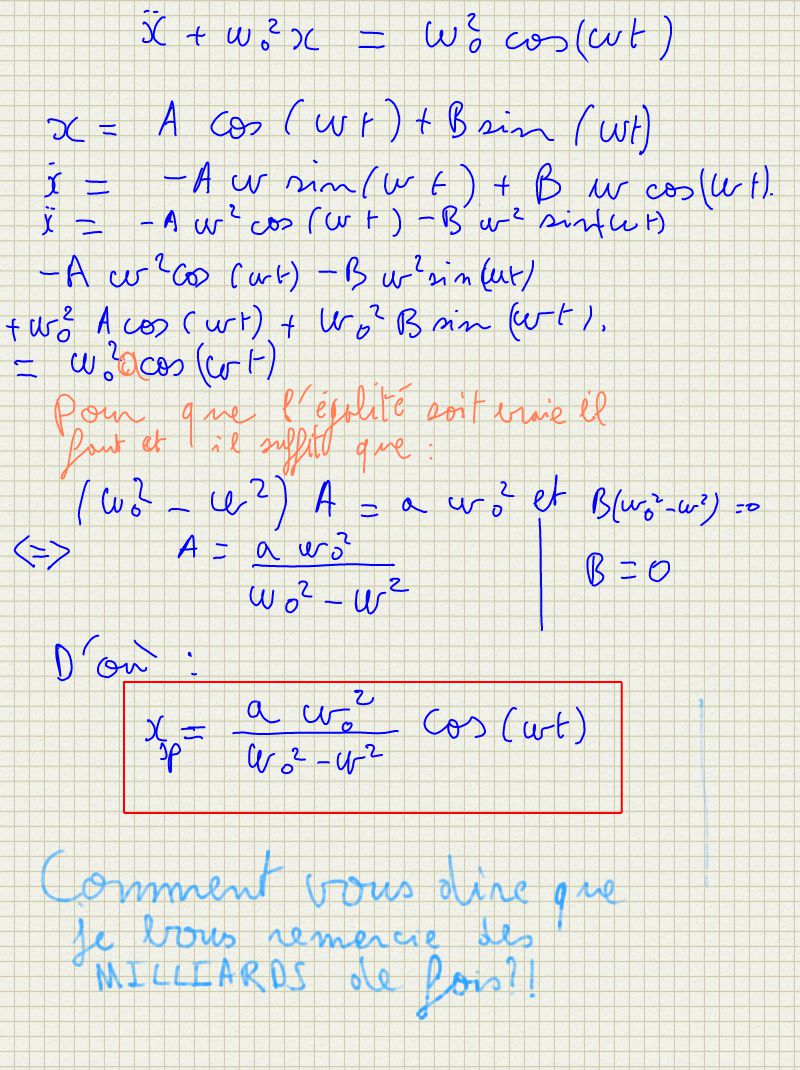 ẍ + ω₀²x = ω₀² cos(ωt)
x = A cos(ωt) + B sin(ωt)
ẋ = -A ω sin(ωt) + B ω cos(ωt).
ẍ = -A ω² cos(ωt) - B ω² sin(ωt)
-A ω² cos(ωt) - B ω² sin(ωt)
+ω₀² A cos(ωt) + ω₀² B sin(ωt).
= ω₀² a cos(ωt)
Pour que l'égalité soit vraie il
faut et il suffit que :
(ω₀² - ω²) A = a ω₀² et B(ω₀² - ω²) = 0
<=> A = a ω₀² / (ω₀² - ω²) | B = 0
D'où :
xₛₚ = a ω₀² / (ω₀² - ω²) cos(ωt)
Comment vous dire que
je vous remercie des
MILLIARDS de fois?!